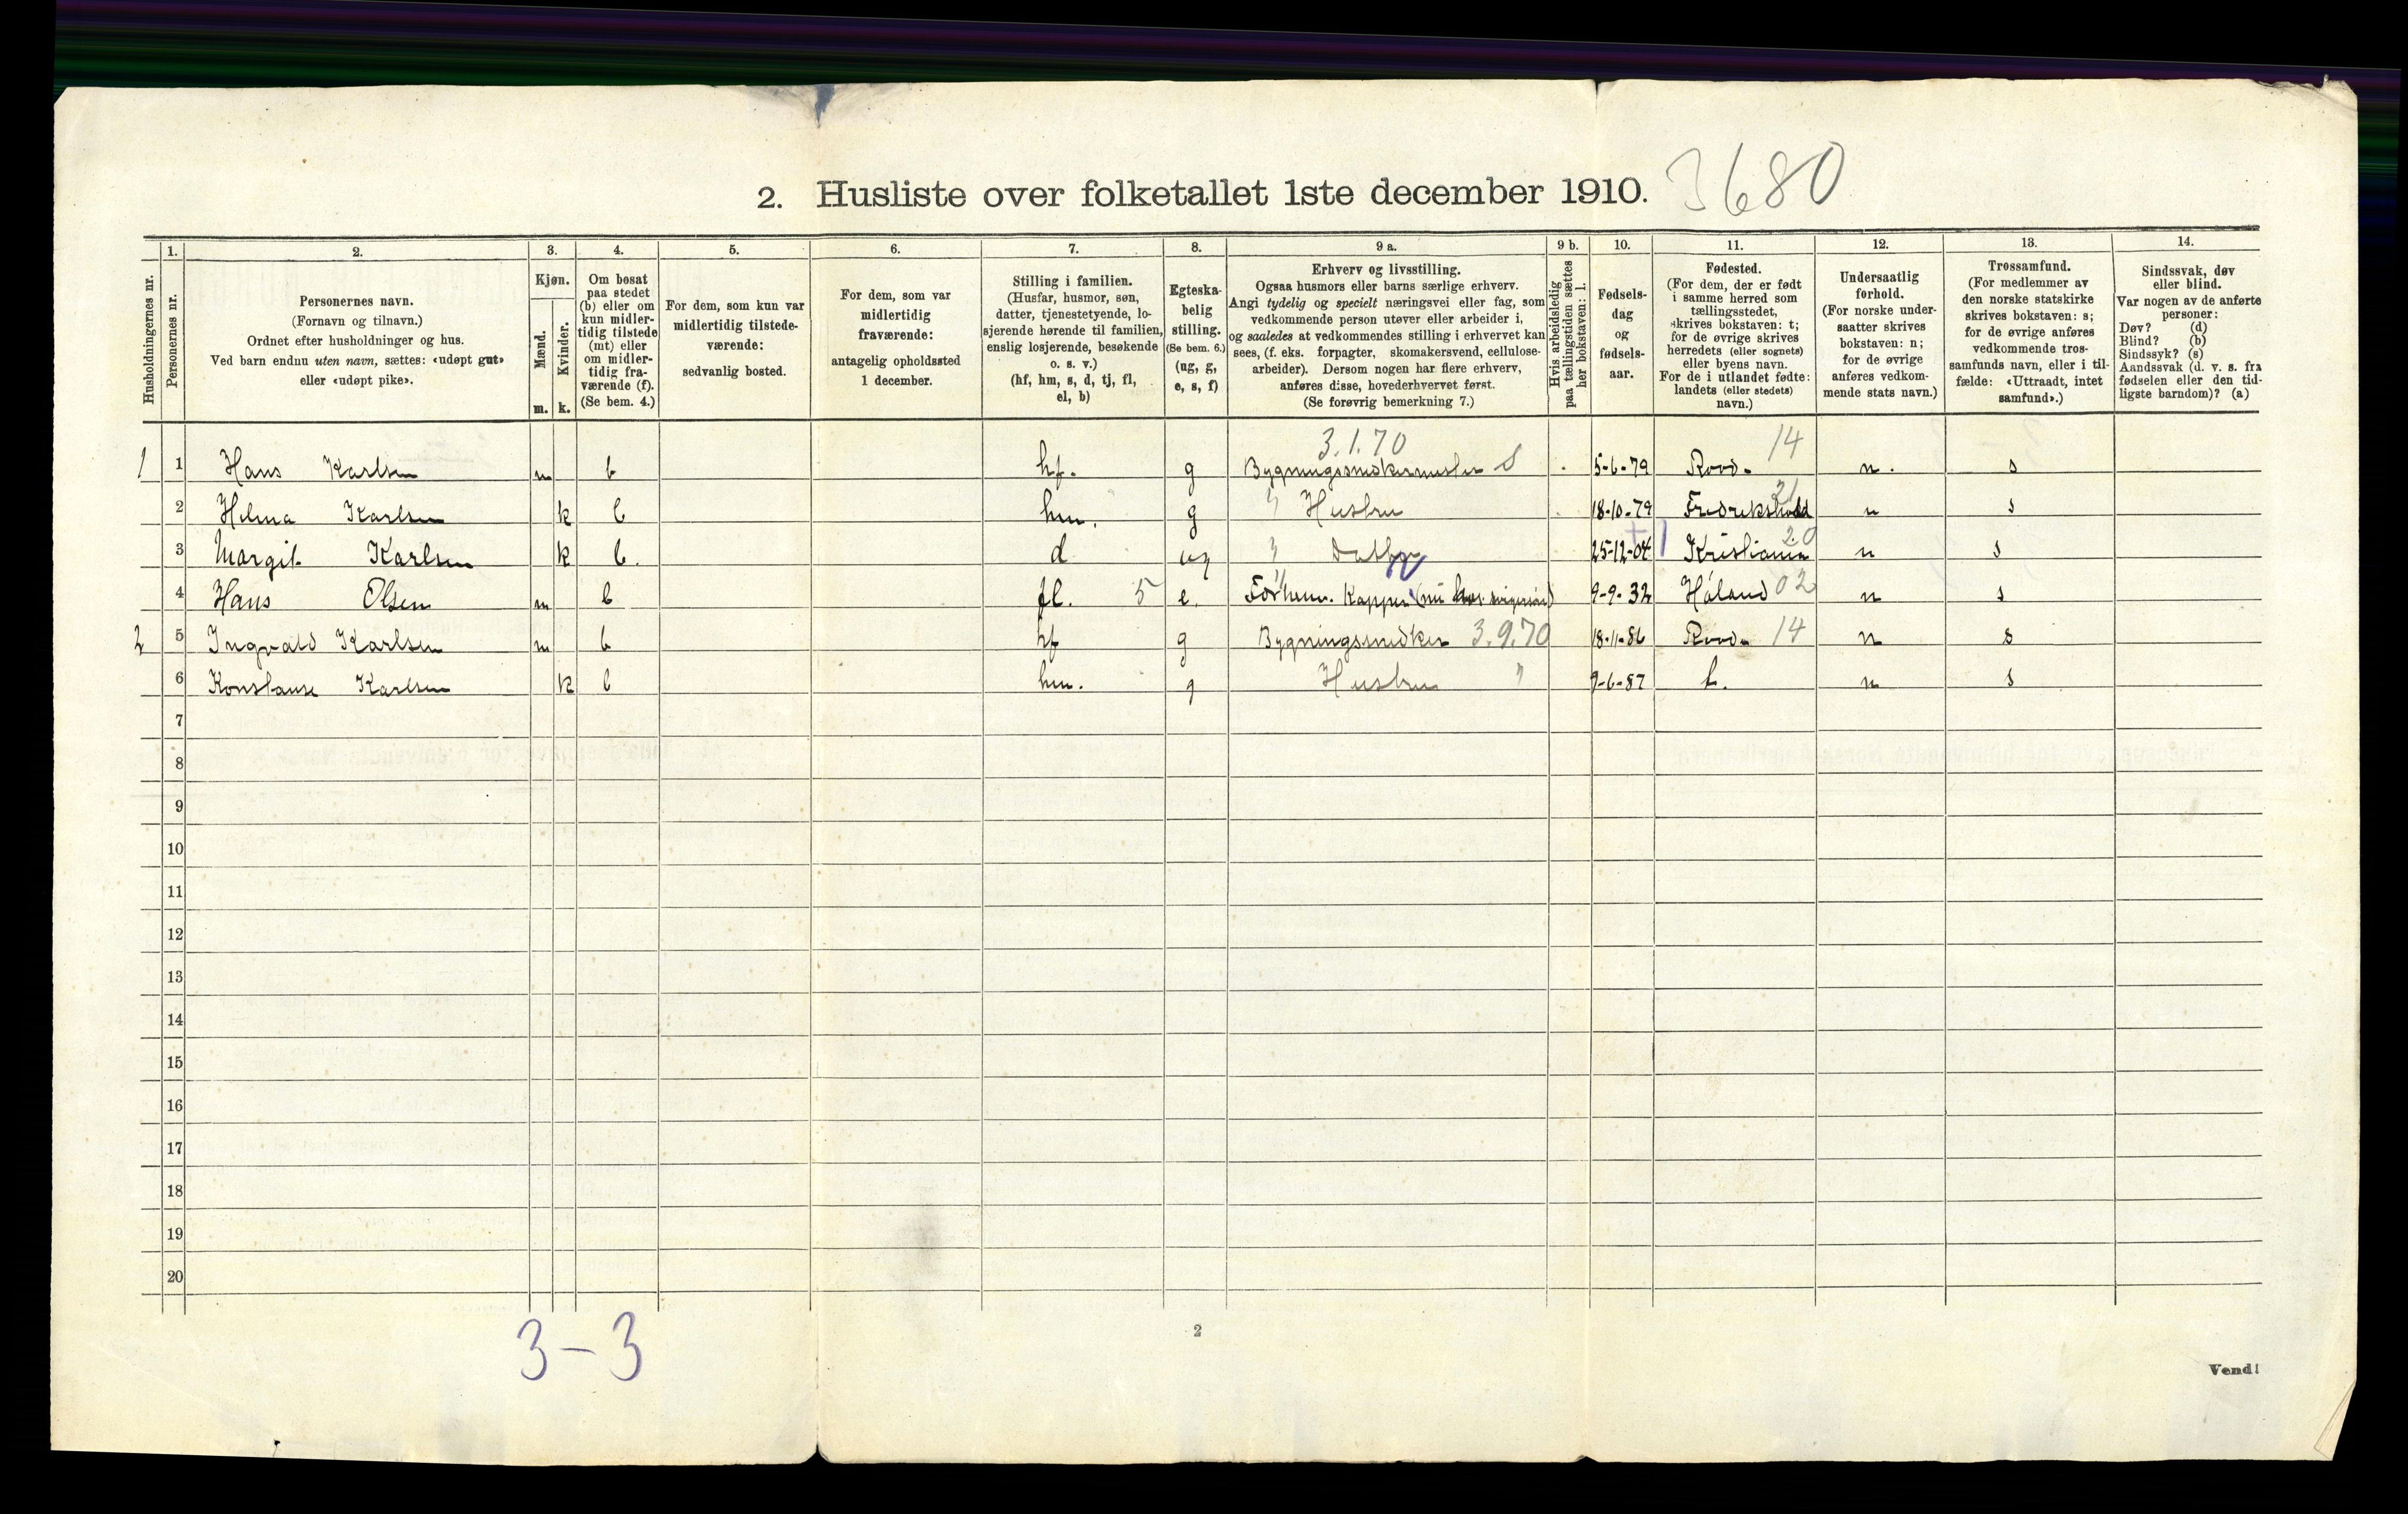 2. Husliste over folketallet 1ste december 1910. 3680
Husholdningernes nr.
1.
Personernes nr.
2.
Personernes navn.
(Fornavn og tilnavn.)
Ordnet efter husholdninger og hus.
Ved barn endnu uten navn, sættes: «udøpt gut»
eller «udøpt pike».
3.
Kjøn.
Mænd.
m.
Kvinder.
k.
4.
Om bosat
paa stedet
(b) eller om
kun midler-
tidig tilstede
(mt) eller
om midler-
tidig fra-
værende (f).
(Se bem. 4.)
5.
For dem, som kun var
midlertidig tilstede-
værende:
sedvanlig bosted.
6.
For dem, som var
midlertidig
fraværende:
antagelig opholdssted
1 december.
7.
Stilling i familien.
(Husfar, husmor, søn,
datter, tjenestetyende, lo-
sjerende hørende til familien,
enslig losjerende, besøkende
o. s. v.)
(hf, hm, s, d, tj, fl,
el, b)
8.
Egteska-
belig
stilling.
(Se bem. 6.)
(ug, g,
e, s, f)
9 a.
Erhverv og livsstilling.
Ogsaa husmors eller barns særlige erhverv.
Angi tydelig og specielt næringsvei eller fag, som
vedkommende person utøver eller arbeider i,
og saaledes at vedkommendes stilling i erhvervet kan
sees, (f. eks. forpagter, skomakersvend, cellulose-
arbeider). Dersom nogen har flere erhverv,
anføres disse, hovederhvervet først.
(Se forøvrig bemerkning 7.)
9 b.
Hvis arbeidsledig
paa tællingstiden sættes
her bokstaven: l.
10.
Fødsels-
dag
og
fødsels-
aar.
11.
Fødested.
(For dem, der er født
i samme herred som
tællingsstedet,
skrives bokstaven: t;
for de øvrige skrives
herredets (eller sognets)
eller byens navn.
For de i utlandet fødte:
landets (eller stedets)
navn.)
12.
Undersaatlig
forhold.
(For norske under-
saatter skrives
bokstaven: n;
for de øvrige
anføres vedkom-
mende stats navn.)
13.
Trossamfund.
(For medlemmer av
den norske statskirke
skrives bokstaven: s;
for de øvrige anføres
vedkommende tros-
samfunds navn, eller i til-
fælde: «Uttraadt, intet
samfund».)
14.
Sindssvak, døv
eller blind.
Var nogen av de anførte
personer:
Døv? (d)
Blind? (b)
Sindssyk? (s)
Aandssvak (d. v. s. fra
fødselen eller den tid-
ligste barndom)? (a)
3.1.70 14
1 1 Hans Karlsen m b hf. g Bygningssnedkermester S 5-6-79 n. s
21
2 Hilma Karlsen k b hm. g " Hustru 18-10-79 Fredrikshald n s
20
3 Margit Karlsen k b. d ug " Datter 25-12-04 Kristiania n s
4 Hans Olsen m b fl. 5 e. 9-9-32 Høland 02 n s
2 5 Ingvald Karlsen m b hf g Bygningssnedker 3.9.70 18-11-86 14 n s
6 Konstanse Karlsen k b hm. g Hustru " 9-6-87 t. n s
7
8
9
10
11
12
13
14
15
16
17
18
19
20
3-3
2
Vend!